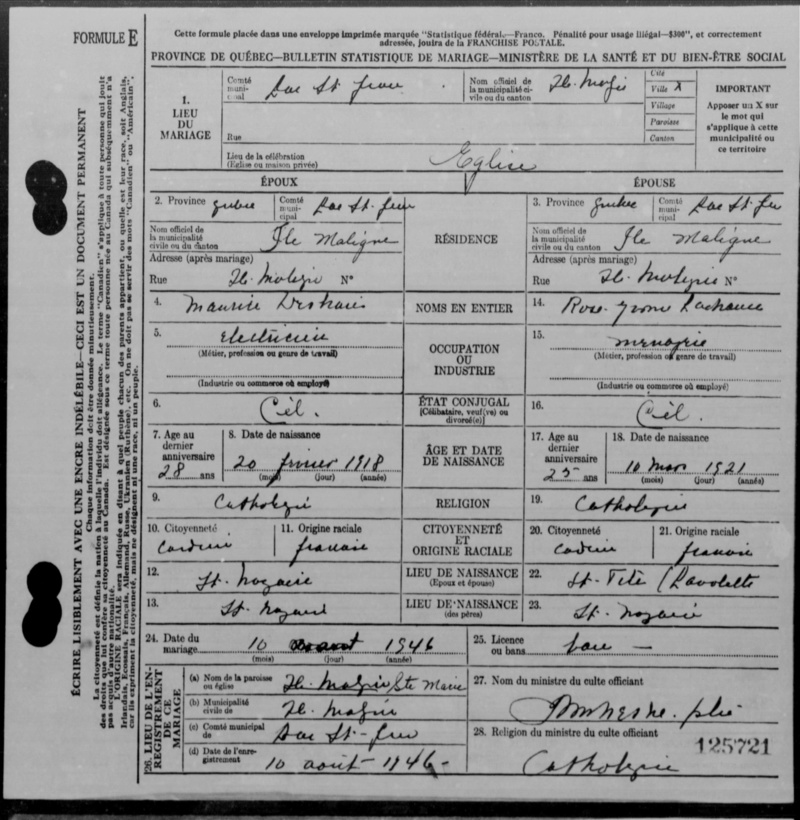 FORMULE E
Cette formule placée dans une enveloppe imprimée marquée "Statistique fédéral.—Franco. Pénalité pour usage illégal—$300", et correctement
adressée, jouira de la FRANCHISE POSTALE.
PROVINCE DE QUÉBEC—BULLETIN STATISTIQUE DE MARIAGE—MINISTÈRE DE LA SANTÉ ET DU BIEN-ÊTRE SOCIAL
ÉCRIRE LISIBLEMENT AVEC UNE ENCRE INDÉLÉBILE—CECI EST UN DOCUMENT PERMANENT
Chaque information doit être donnée minutieusement.
La citoyenneté est définie la nation à laquelle l'individu doit allégeance. Le terme "Canadien" s'applique à toute personne qui jouit
des droits que lui confère sa citoyenneté au Canada. Est désignée sous ce terme toute personne née au Canada qui subséquemment n'a
pas acquis d'autre nationalité.
L'ORIGINE RACIALE sera indiquée en disant à quel peuple chacun des parents appartient, ou quelle est leur race, soit Anglais,
Irlandais, Ecossais, Français, Allemand, Russe, Ukranien (Ruthène), etc. On ne doit pas se servir des mots "Canadien" ou "Américain",
car ils expriment la citoyenneté, mais ne désignent ni une race, ni un peuple.
1. LIEU DU MARIAGE
Comté municipal Lac St. Jean
Nom officiel de la municipalité civile ou du canton
Cité
Ville X
Village
Paroisse
Canton
IMPORTANT
Apposer un X sur le mot qui s'applique à cette municipalité ou ce territoire
Rue
Lieu de la célébration (Eglise ou maison privée) Eglise
ÉPOUX
ÉPOUSE
2. Province Quebec Comté municipal Lac St. Jean
RÉSIDENCE
3. Province Quebec Comté municipal Lac St. Jean
Nom officiel de la municipalité civile ou du canton Île Maligne
Nom officiel de la municipalité civile ou du canton Île Maligne
Adresse (après mariage)
Rue Île Maligne N°
Adresse (après mariage)
Rue Île Maligne N°
4. Maurice
NOMS EN ENTIER
14. Rose-Yvonne Lachance
5. Electricien
(Métier, profession ou genre de travail)
(Industrie ou commerce où employé)
OCCUPATION OU INDUSTRIE
15. menagère
(Métier, profession ou genre de travail)
(Industrie ou commerce où employé)
6. Cél.
ÉTAT CONJUGAL
[Célibataire, veuf(ve) ou divorcé(e)]
16. Cél.
7. Age au dernier anniversaire 28 ans
8. Date de naissance 20 février 1918
(mois) (jour) (année)
ÂGE ET DATE DE NAISSANCE
17. Age au dernier anniversaire 25 ans
18. Date de naissance 10 mars 1921
(mois) (jour) (année)
9. Catholique
RELIGION
19. Catholique
10. Citoyenneté
11. Origine raciale
CITOYENNETÉ ET ORIGINE RACIALE
20. Citoyenneté
21. Origine raciale
12. St. Nazaire
LIEU DE NAISSANCE
(Epoux et épouse)
22. St. Tite
13. St. Nazaire
LIEU DE NAISSANCE
(des pères)
23. St. Nazaire
24. Date du mariage 10 août 1946
(mois) (jour) (année)
25. Licence ou bans
26. LIEU DE L'ENREGISTREMENT DE CE MARIAGE
(a) Nom de la paroisse ou église Île Maligne Ste Marie
(b) Municipalité civile de
(c) Comté municipal de Lac St-Jean
(d) Date de l'enregistrement 10 août - 1946 -
27. Nom du ministre du culte officiant
28. Religion du ministre du culte officiant
Catholique
125721